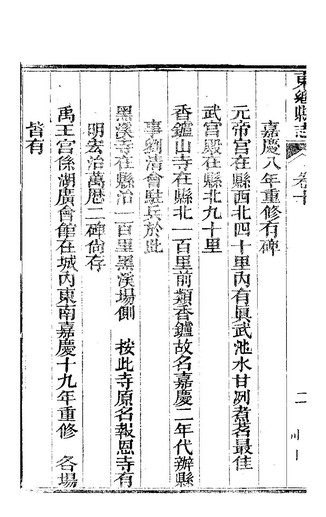 東鄉縣志
卷十
二
嘉慶八年重修有碑
元帝宮在縣西北四十里內有真武池水甘冽煮茗最佳
武宮殿在縣北九十里
香鑪山寺在縣北一百里前類香鑪故名嘉慶二年代辦縣
事劉清會駐兵於此
黑溪寺在縣治一百里黑溪場側 按此寺原名報恩寺有
明宏治萬曆二碑尚存
禹王宮係湖廣會館在城內東南嘉慶十九年重修 各場
皆有